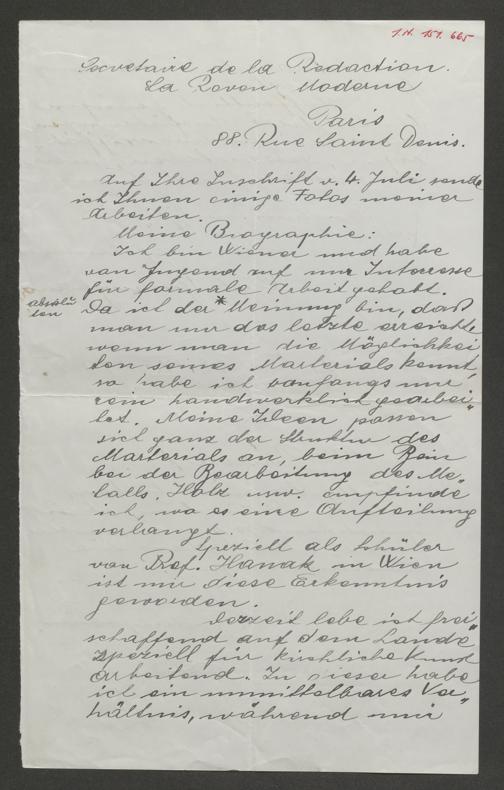 I.N. 151.665
Secretaire de la Redaction.
La Revou Moderne
Paris
88. Rue Saint Denis.
Auf Ihre Inschrift v. 4. Juli sende
ich Ihnen einige Fotos meiner
Arbeiten.
Meine Biographie:
Ich bin Wiener und habe
von Jugend auf nur Interesse
für formale Arbeit gehabt.
absolu
ten
Da ich der * Meinung bin, daß
man nur das letzte erreicht,
wenn man die Möglichkei
ten seines Marterials kennt
so habe ich anfangs nur
rein handwerklich gearbei„
tet. Meine Ideen passen
sich ganz der Struktur des
Marterials an, beim Bein
bei der Bearbeitung des Me„
talls, Holz usw. empfinde
ich, wo es eine Aufteilung
verlangt.
Speziell als Schüler
von Prof. Hanak in Wien
ist mir diese Erkenntnis
geworden.
Derzeit lebe ich frei„
schaffend auf dem Lande
speziell für kirchliche Kunst
arbeitend. In dieser habe
ich ein unmittelbares Ver„
hältnis, während mir